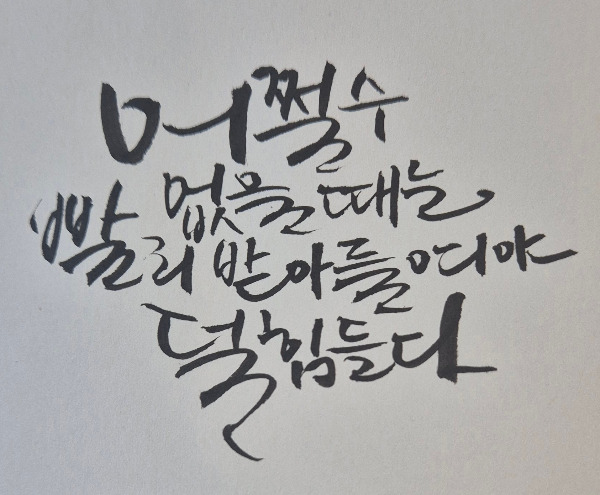 어쩔수
없을때는
빨리 받아들여야
덜 힘들다